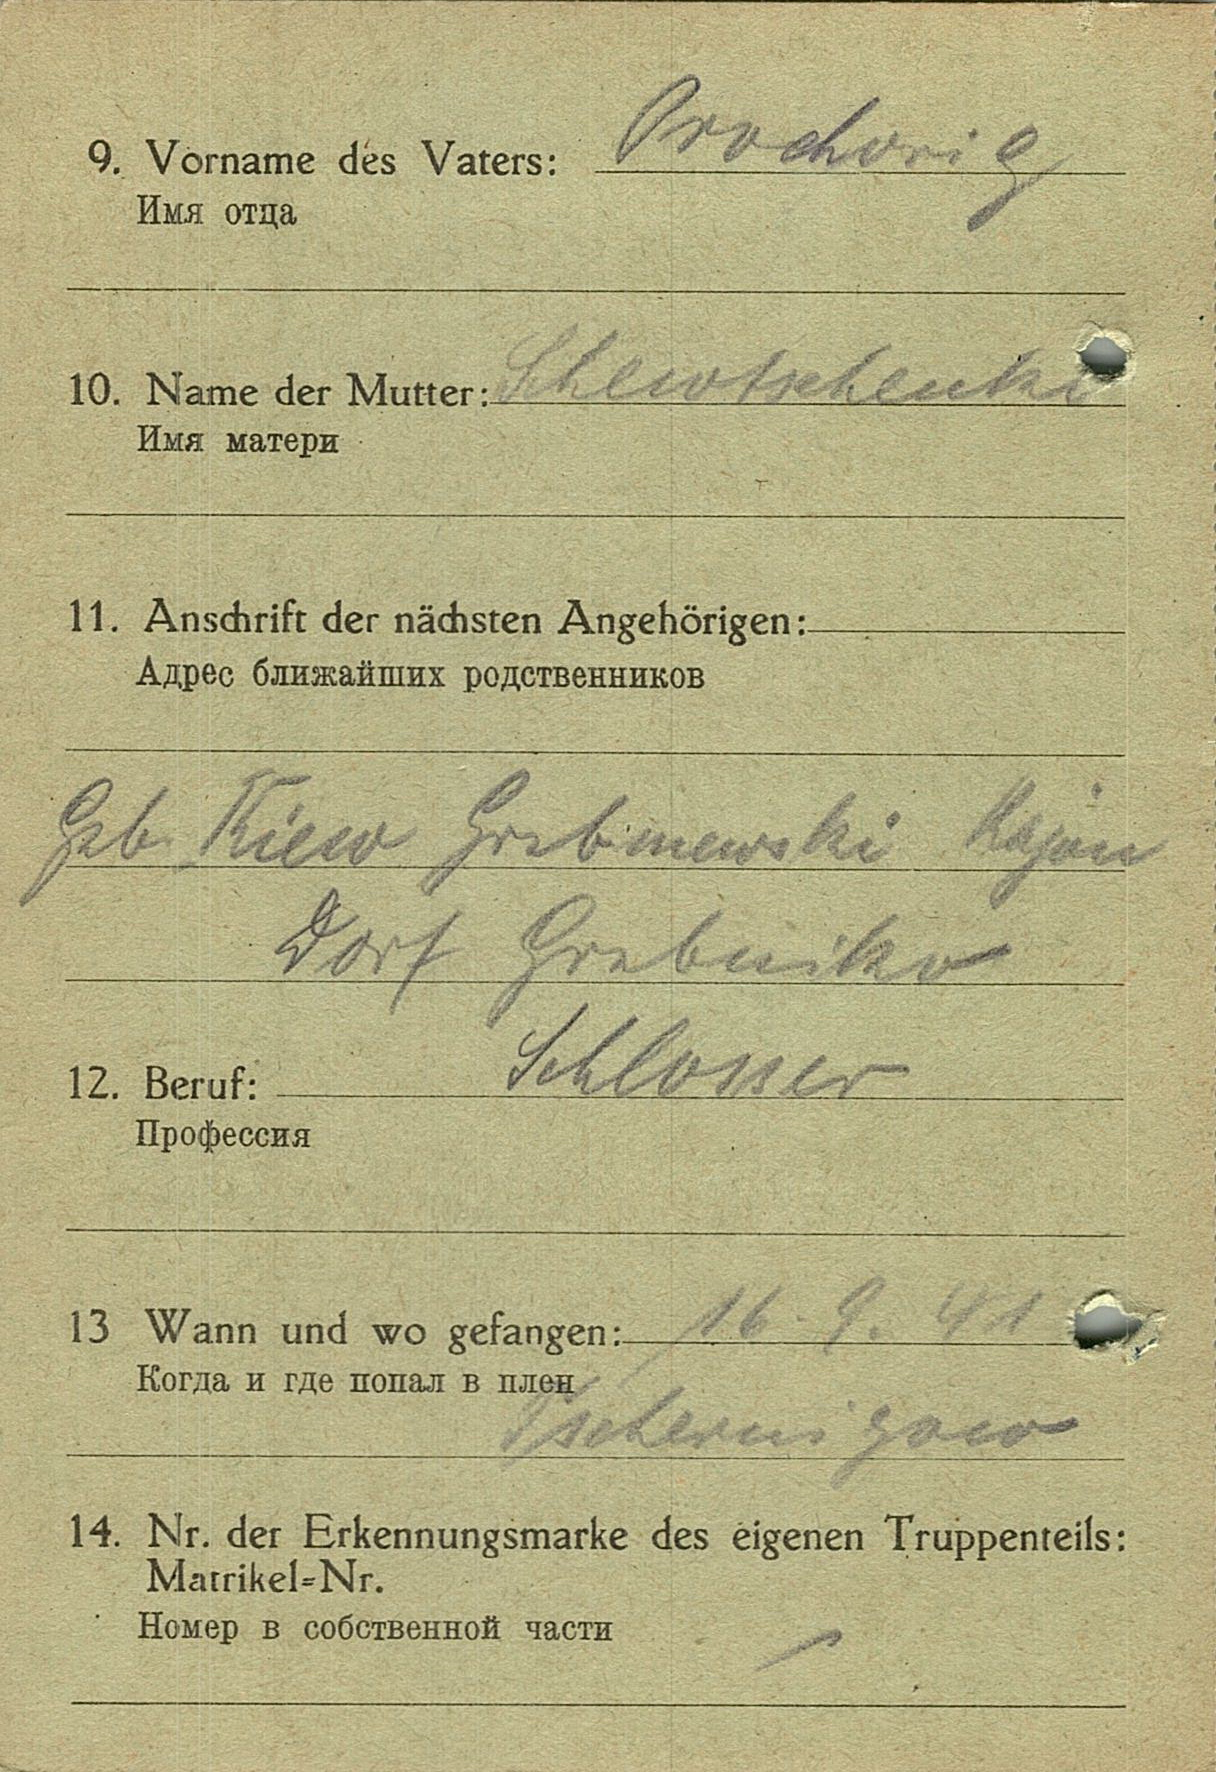 9. Vorname des Vaters: Prochorig
Имя отца
10. Name der Mutter: Schewtschenko
Имя матери
11. Anschrift der nächsten Angehörigen:
Адрес ближайших родственников
Geb. Kiew Grebinewski Rajon
Dorf Grebniko
12. Beruf: Schlosser
Профессия
13 Wann und wo gefangen: 16. 9. 41
Когда и где попал в плен
Tschernigow
14. Nr. der Erkennungsmarke des eigenen Truppenteils:
Matrikel=Nr.
Номер в собственной части